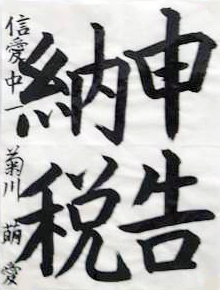 申告
納税
信愛中一 菊川萌愛